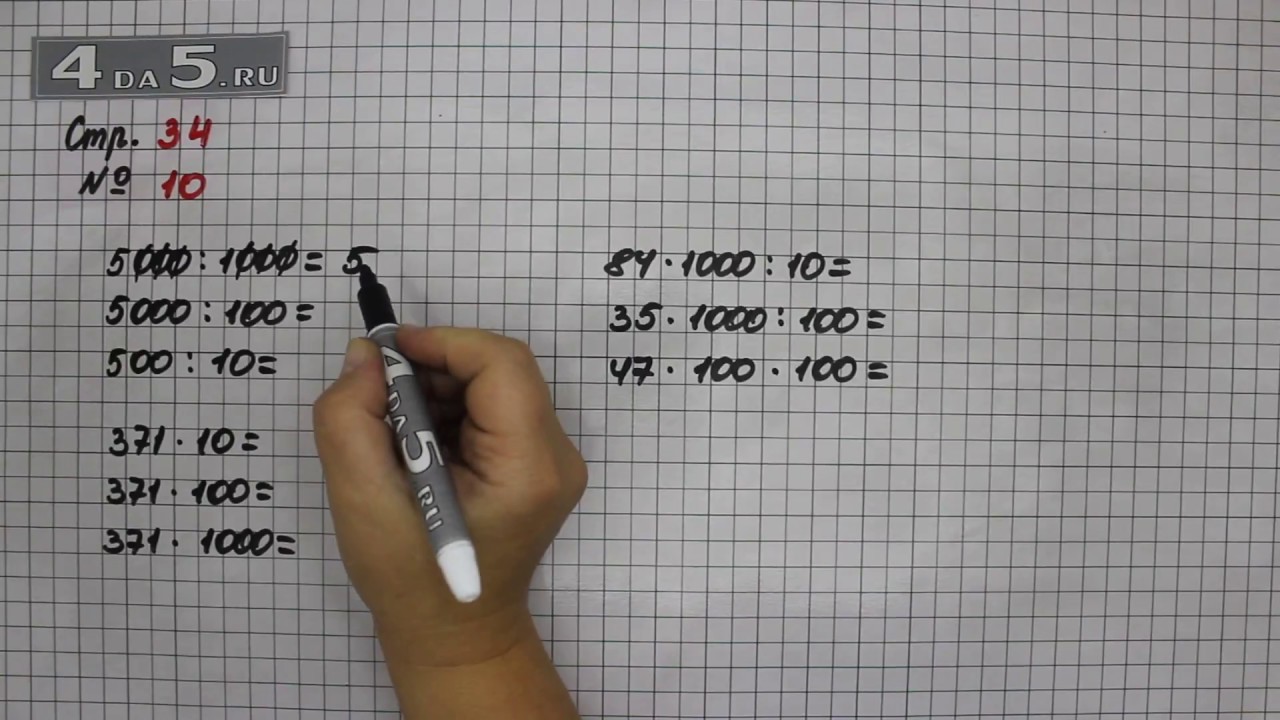 4 DA 5.RU
Стр. 34
№ 10
5000 : 1000 = 5
5000 : 100 =
500 : 10 =
371 · 10 =
371 · 100 =
371 · 1000 =
84 · 1000 : 10 =
35 · 1000 : 100 =
47 · 100 · 100 =
4 DA 5.RU